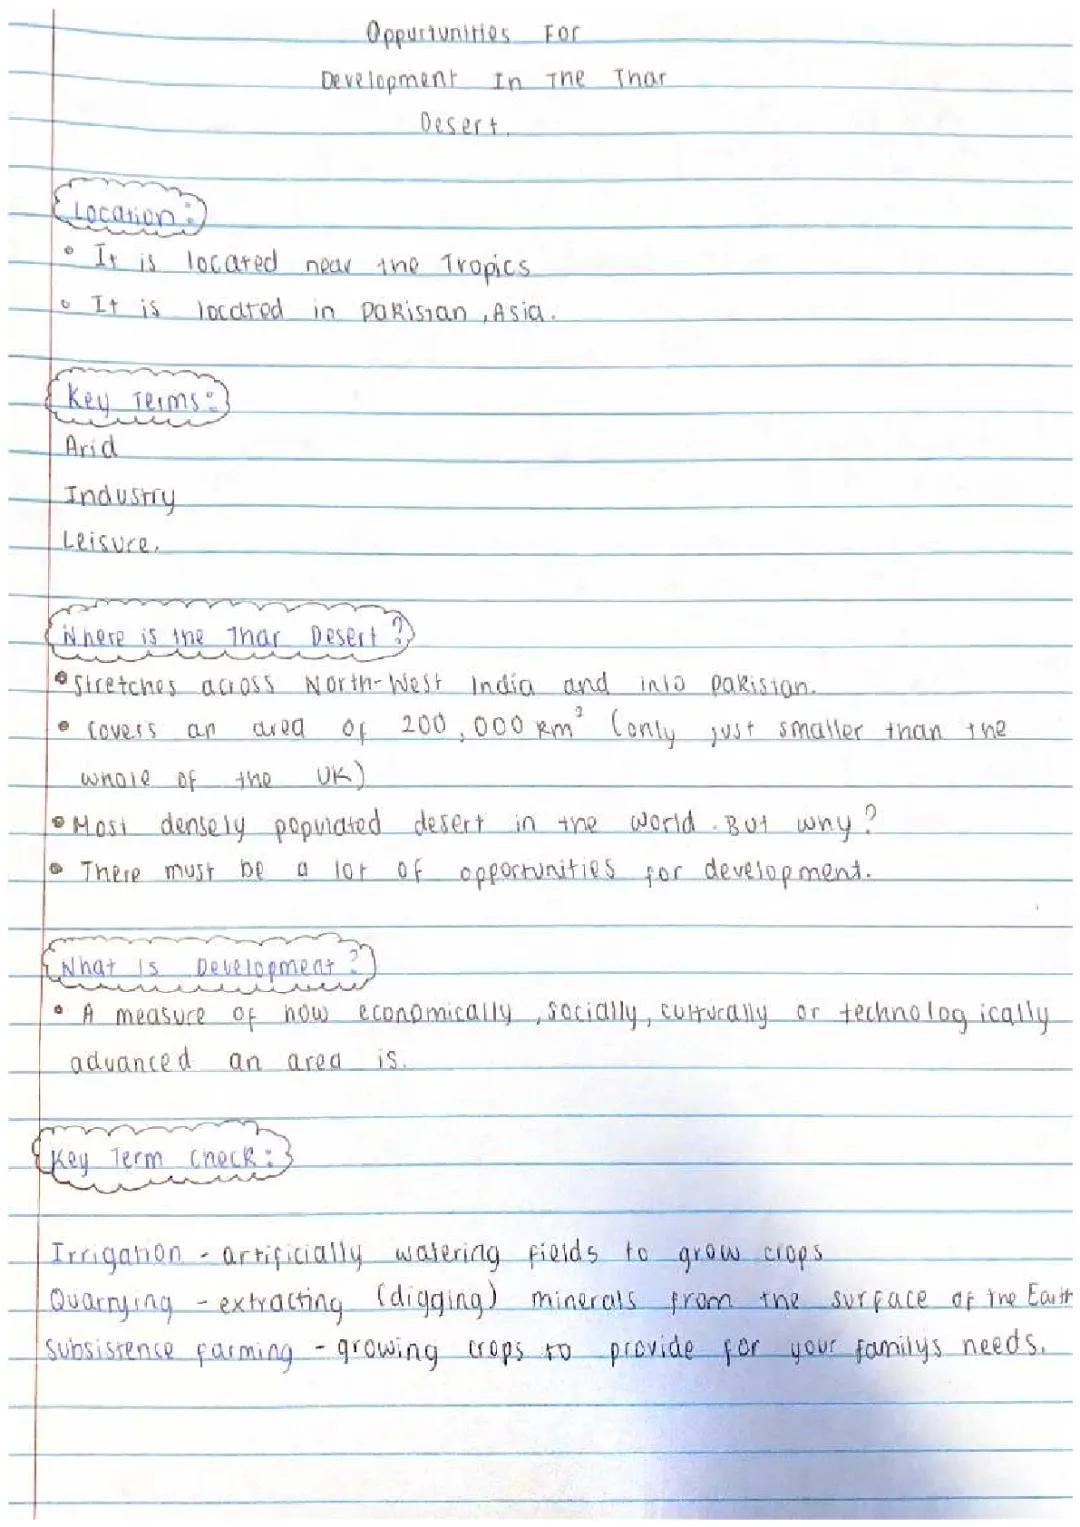 Oppurtunities For
Development In The Thar
Desert.
Location:
• It is located near the Tropics
• It is located in Pakistan, Asia.
Key Terms:
Arid
Industry
Leisure.
Where is the Thar Desert?
• Stretches across North-West India and into pakistan.
• Covers an area of 200,000 km² (only just smaller than the
whole of the UK)
• Most densely populated desert in the world. But why?
• There must be a lot of opportunities for development.
What Is Development?
• A measure of how economically, socially, culturally or technologically
advanced an area is.
Key Term Check:
Irrigation - artificially watering fields to grow crops
Quarrying - extracting (digging) minerals from the surface of the Earth
Subsistence farming - growing crops to provide for your familys needs.